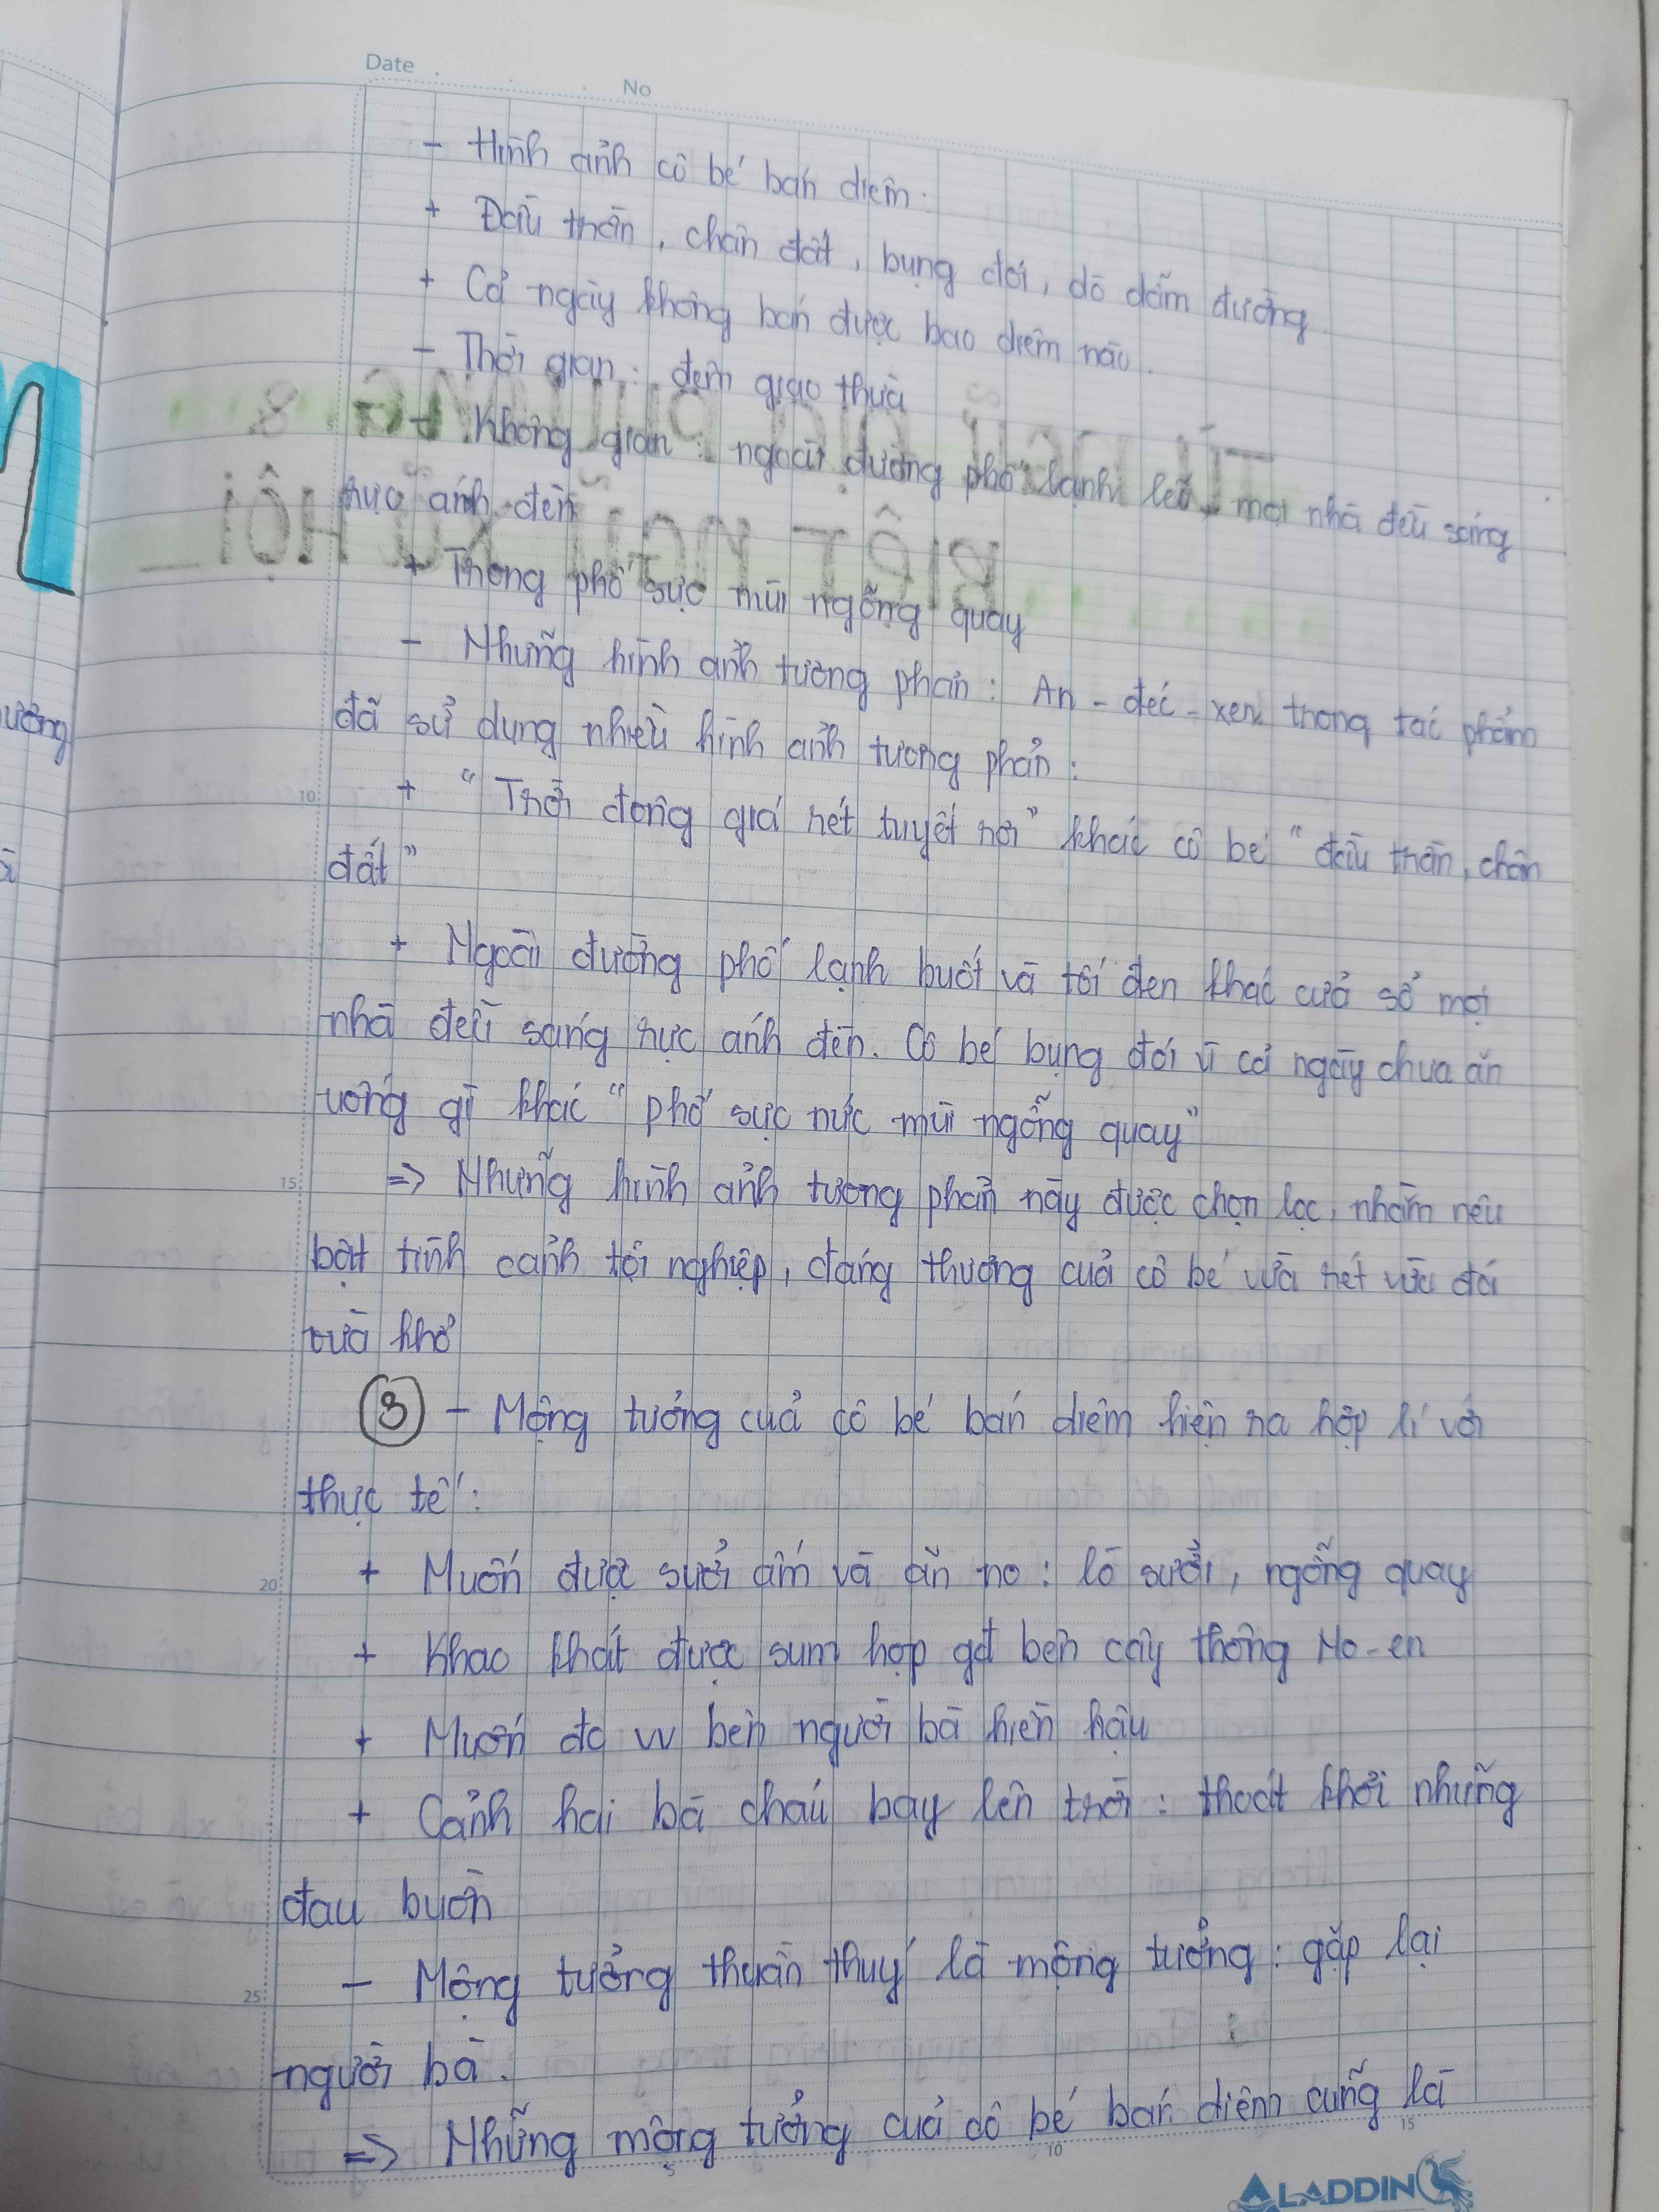 Date
No
- Hình ảnh cô bé bán diêm:
+ Đầu trần, chân đất, bụng đói, dò dẫm đường
+ Cả ngày không bán được bao diêm nào.
- Thời gian: đêm giao thừa
+ Không gian: ngoài đường phố lạnh lẽo, mọi nhà đều sáng
rực ánh đèn
+ Trong phố sực mùi ngỗng quay
- Những hình ảnh tương phản: An-đéc-xen trong tác phẩm
đã sử dụng nhiều hình ảnh tương phản:
+ "Trời đông giá rét tuyết rơi" khác cô bé "đầu trần, chân
đất"
+ Ngoài đường phố lạnh buốt và tối đen khác cửa sổ mọi
nhà đều sáng rực ánh đèn. Cô bé bụng đói vì cả ngày chưa ăn
uống gì khác "phố sực nức mùi ngỗng quay"
=> Những hình ảnh tương phản này được chọn lọc, nhằm nêu
bật tình cảnh tội nghiệp, đáng thương của cô bé vừa rét vừa đói
vừa khổ
③ - Mộng tưởng của cô bé bán diêm hiện ra hợp lí với
thực tế:
+ Muốn được sưởi ấm và ăn no: lò sưởi, ngỗng quay
+ Khao khát được sum họp gđ bên cây thông No-en
+ Muốn đc vv bên người bà hiền hậu
+ Cảnh hai bà cháu bay lên trời: thoát khỏi những
đau buồn
- Mộng tưởng thuần thuý là mộng tưởng: gặp lại
người bà.
=> Những mộng tưởng của cô bé bán diêm cũng là
5
10
15
20
25
5
10
15
ALADDIN
ương